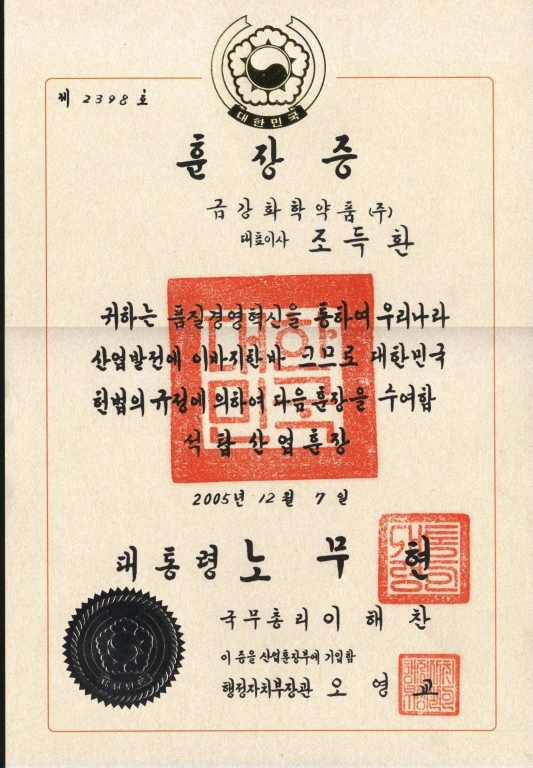 대한민국
제 2398 호
훈 장 증
금강화학약품(주)
대표이사 조득환
귀하는 품질경영혁신을 통하여 우리나라
산업발전에 이바지한바 크므로 대한민국
헌법의 규정에 의하여 다음 훈장을 수여함
석탑산업훈장
2005년 12월 7일
대통령 노무현
국무총리 이해찬
이 증을 산업훈장부에 기입함
행정자치부장관 오영교
대한민국